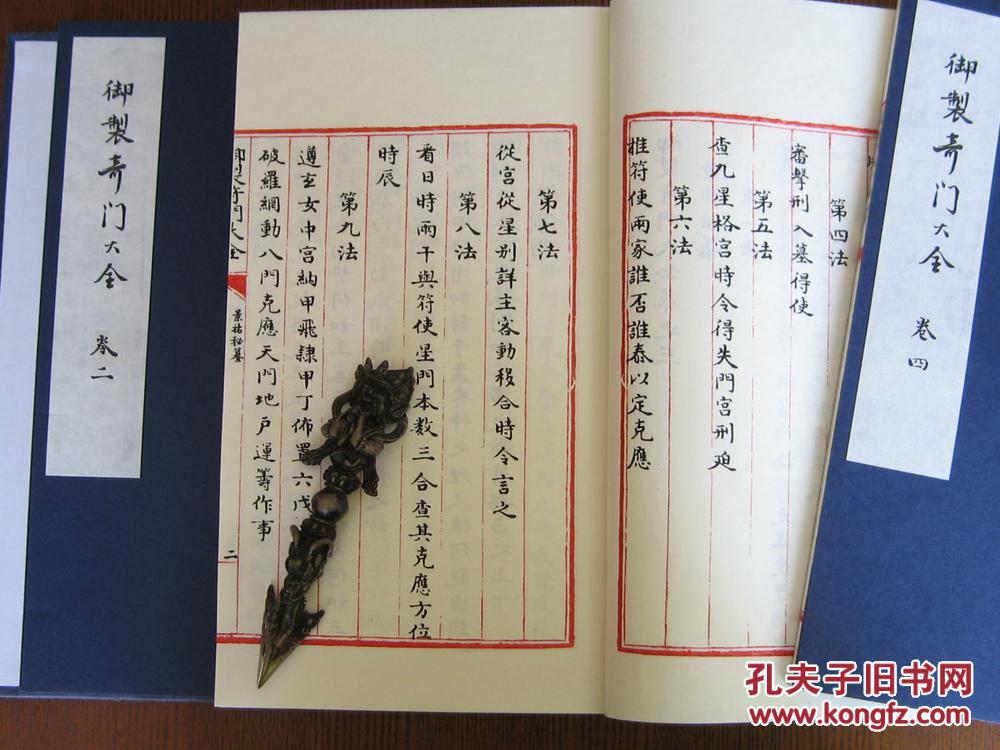 御製奇门大全
卷四
第四法
審擊刑入墓得使
第五法
查九星格宫時令得失門宫刑廹
第六法
推符使兩家誰否誰泰以定克應
第七法
從宫從星别詳主客動移合時令言之
第八法
看日時兩干與符使星門本数三合查其克應方位
時辰
第九法
遵玄女中宫納甲飛隷甲丁佈置六戊
破羅網動八門克應天門地户運筹作事
景祐秘纂
二
御製奇门大全
卷二
孔夫子旧书网
www.kongfz.com